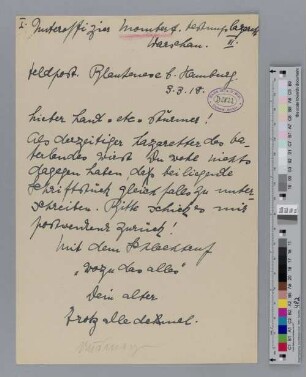 I. Unteroffizier Mombert. Festungslazarett
Warschau. II.
Feldpost. Blankenese b. Hamburg.
3.3.18.
Lieber Land = etc = Stürmer!
Als derzeitiger Lazaretter des be-
wirst Du wohl nichts
dagegen haben, daß beiliegende
Schriftstück gleichfalls zu unter-
schreiben. Bitte schick es mir
postwendend zurück!
Mit dem
"wozu das alles"
Dein alter
Trotz alledem